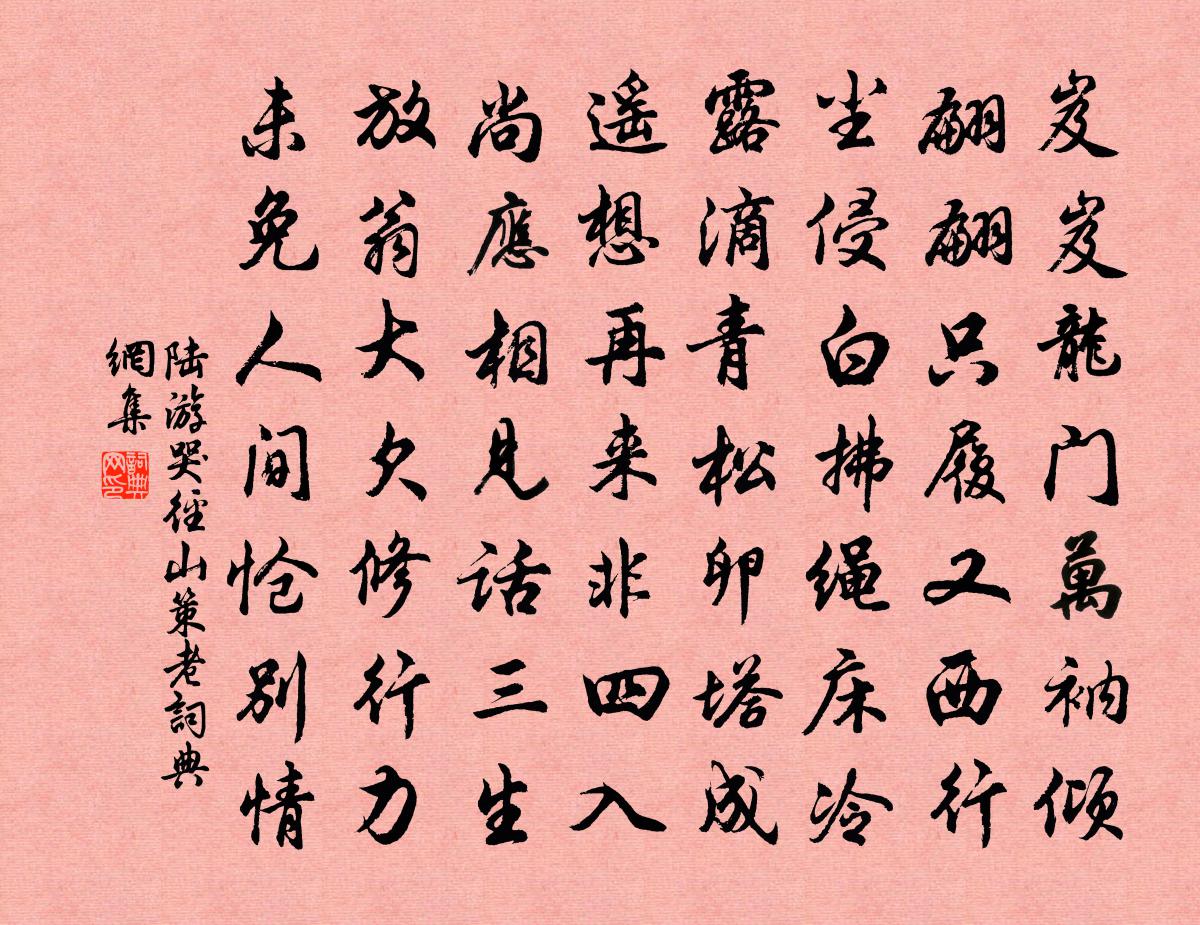 岌岌龍门萬衲倾
翩翩只履又西行
尘侵白拂绳床冷
露滴青松卵塔成
遥想再来非四入
尚應相見话三生
放翁大欠修行力
未免人间怆别情
陆游哭径山策老詞典
網集
詞典网印